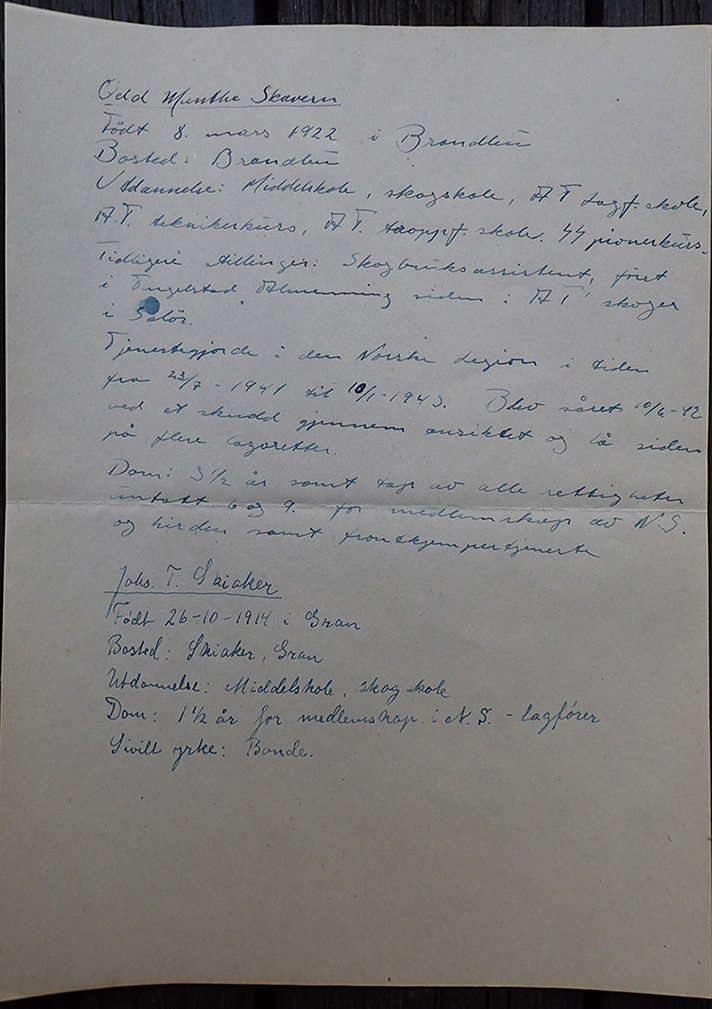 Odd Munthe Skavern
Født 8. mars 1922 i Brandbu
Bosted: Brandbu
Utdannelse: Middelskole, skogskole, AT lagf. skole,
A.T. teknikerkurs, AT. troppf. skole. 44 pionerkurs.
Tidligere stillinger: Skogbruksassistent, først
i Tingelstad Almenning siden i AT' skoger
i Solör.
Tjenestegjorde i den Norske Legion i tiden
fra 23/7 - 1941 til 10/1-1943. Blev såret 10/4-42
ved et skudd gjennem ansiktet og lå siden
på flere lazaretter.
Dom: 3 1/2 år samt tap av alle rettigheter
untatt 6 og 9. for medlemskap av N.S.
og hirden samt frontkjempertjeneste
Johs. T. Skiaker
Født 26-10-1914 i Gran
Bosted: Skiaker, Gran
Utdannelse: Middelskole, skogskole
Dom: 1 1/2 år for medlemskap i N.S. - lagfører
Sivilt yrke: Bonde.